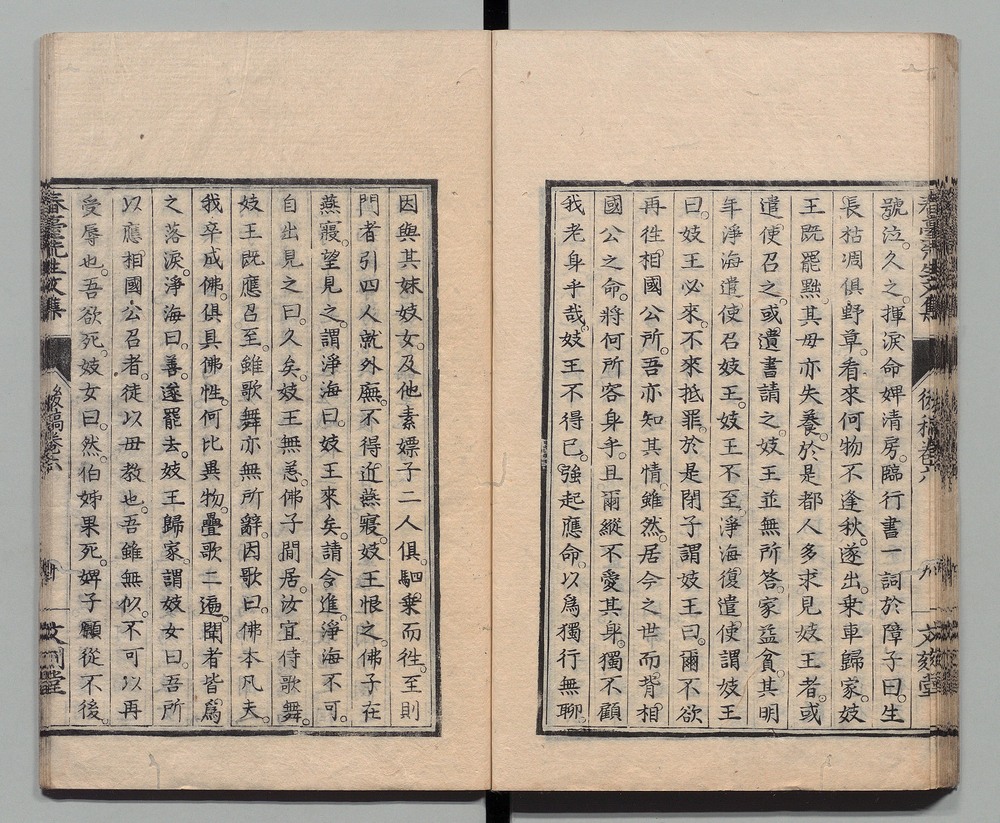 號泣久之揮淚命婢清房臨行書一詞於障子曰生
長枯凋俱野草看來何物不逢秋遂出乗車歸家妓
王既罷黜其母亦失養於是都人多求見妓王者或
遣使召之或遺書請之妓王並無所答家益貪其明
年淨海遣使召妓王妓王不至淨海復遣使謂妓王
曰妓王必來不來抵罪於是閉子謂妓王曰爾不欲
再徃相國公所吾亦知其情雖然居今之世而背相
國公之命將何所容身乎且爾縱不愛其身獨不顧
我老身乎哉妓王不得已強起應命以爲獨行無聊
因與其妹妓女及他素嫖子二人俱駟乗而徃至則
門者引四人就外廡不得近燕寢妓王恨之佛子在
燕寢望見之謂淨海曰妓王來矣請令進淨海不可
自出見之曰久矣妓王無恙佛子間居汝宜侍歌舞
妓王既應召至雖歌舞亦無所辭因歌曰佛本凡夫
我卒成佛俱具佛性何比異物疊歌二遍聞者皆爲
之落淚淨海曰善遂罷去妓王歸家謂妓女曰吾所
以應相國公召者徒以母教也吾雖無似不可以再
受辱也吾欲死妓女曰然伯姊果死婢子願從不後
春臺先生文集
後稿卷六
九
文刻堂